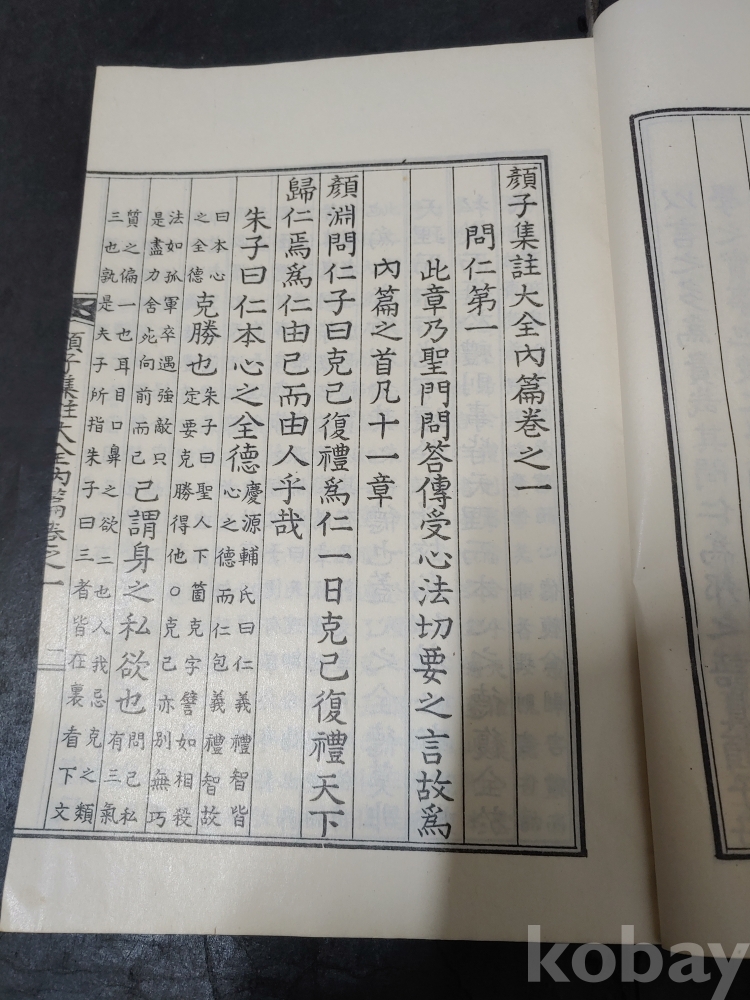 顔子集註大全內篇卷之一
問仁第一
此章乃聖門問答傳受心法切要之言故爲
內篇之首凡十一章
顔淵問仁子曰克己復禮爲仁一日克己復禮天下
歸仁焉爲仁由己而由人乎哉
朱子曰仁本心之全德慶源輔氏曰仁義禮智皆
心之德而仁包義禮智故
曰本心
之全德克勝也朱子曰聖人下箇克字譬如相殺
定要克勝得他○克己亦別無巧
法如孤軍卒遇強敵只
是盡力舍死向前而已己謂身之私欲也問己私
有三氣
質之偏一也耳目口鼻之欲二也人我忌克之類
三也孰是夫子所指朱子曰三者皆在裏看下文
顔子集註大全內篇卷之一
kobay